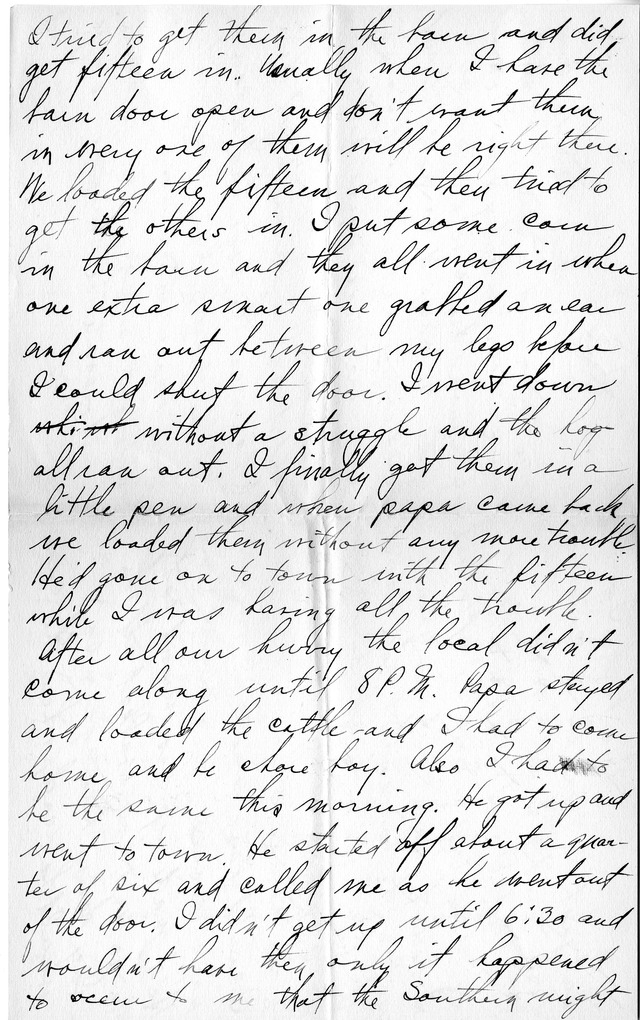 I tried to get them in the barn and did
get fifteen in. Usually when I have the
barn door open and don't want them
in every one of them will be right there.
We loaded the fifteen and then tried to
get the others in. I put some corn
in the barn and they all went in when
one extra smart one grabbed an ear
and ran out between my legs before
I could shut the door. I went down
without a struggle and the hog
all ran out. I finally got them in a
little pen and when papa came back
we loaded them without any more trouble
He'd gone on to town with the fifteen
while I was having all the trouble.
After all our hurry the local didn't
come along until 8 P.M. Papa stayed
and loaded the cattle and I had to come
home and be chore boy. Also I had to
be the same this morning. He got up and
went to town. He started off about a quar-
ter of six and called me as he went out
of the door. I didn't get up until 6:30 and
wouldn't have then only it happened
to occur to me that the Southern might